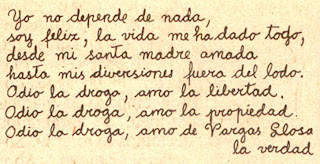 Yo no depende de nada,
soy feliz, la vida me ha dado todo,
desde mi santa madre amada
hasta mis diversiones fuera del lodo.
Odio la droga, amo la libertad.
Odio la droga, amo la propiedad.
Odio la droga, amo de Vargas Llosa
la verdad